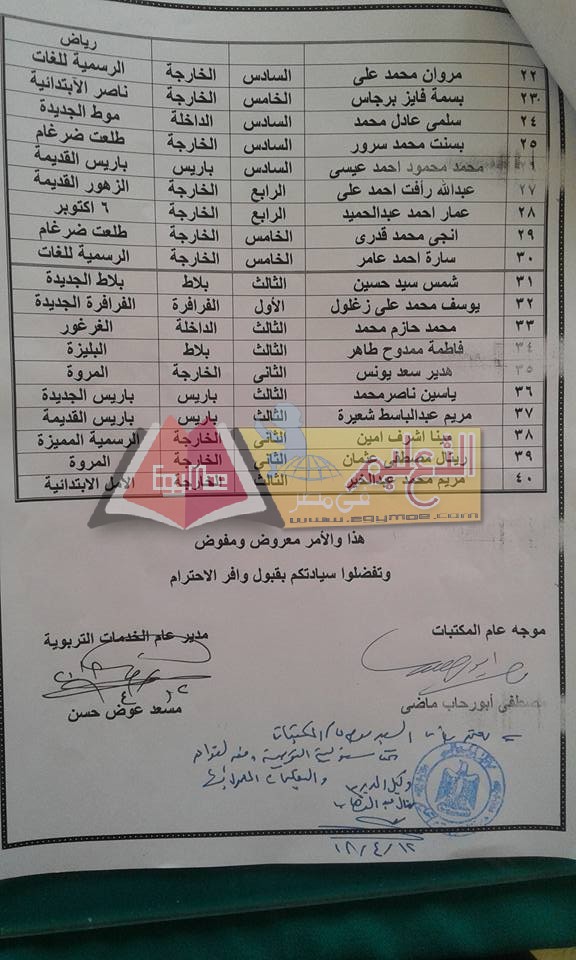 رياض
٢٢ مروان محمد على السادس الخارجة الرسمية للغات
٢٣ بسمة فايز برجاس الخامس الخارجة ناصر الأبتدائية
٢٤ سلمى عادل محمد السادس الداخلة موط الجديدة
٢٥ بسنت محمد سرور السادس الخارجة طلعت ضرغام
٢٦ محمد محمود احمد عيسى السادس باريس باريس القديمة
٢٧ عبدالله رأفت احمد على الرابع الخارجة الزهور القديمة
٢٨ عمار احمد عبدالحميد الرابع الخارجة ٦ اكتوبر
٢٩ انجى محمد قدرى الخامس الخارجة طلعت ضرغام
٣٠ سارة احمد عامر الخامس الخارجة الرسمية للغات
٣١ شمس سيد حسين الثالث بلاط بلاط الجديدة
٣٢ يوسف محمد على زغلول الأول الفرافرة الفرافرة الجديدة
٣٣ محمد حازم محمد الثالث الداخلة الغرغور
٣٤ فاطمة ممدوح طاهر الثالث بلاط البليزة
٣٥ هدير سعد يونس الثانى الخارجة المروة
٣٦ ياسين ناصرمحمد الثالث باريس باريس الجديدة
٣٧ مريم عبدالباسط شعيرة الثالث باريس باريس القديمة
٣٨ مينا اشرف امين الثانى الخارجة الرسمية المميزة
٣٩ ريتال مصطفى عثمان الثانى الخارجة المروة
٤٠ مريم محمد عبدالخير الثالث الخارجة الأمل الابتدائية
التعليم فى مصر
www.egymoe.com
هذا والأمر معروض ومفوض
وتفضلوا سيادتكم بقبول وافر الاحترام
موجه عام المكتبات مدير عام الخدمات التربوية
مصطفى أبورحاب ماضى مسعد عوض حسن
١٨/٤/١٢